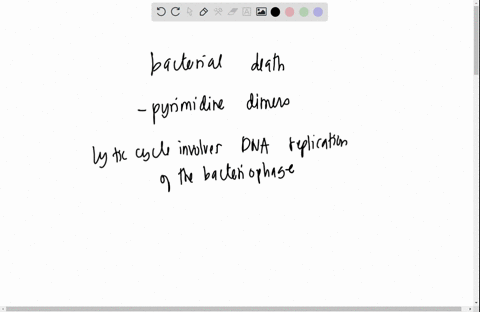 bacterial death
- pyrimidine dimers
lytic cycle involves DNA replication
of the bacteriophage